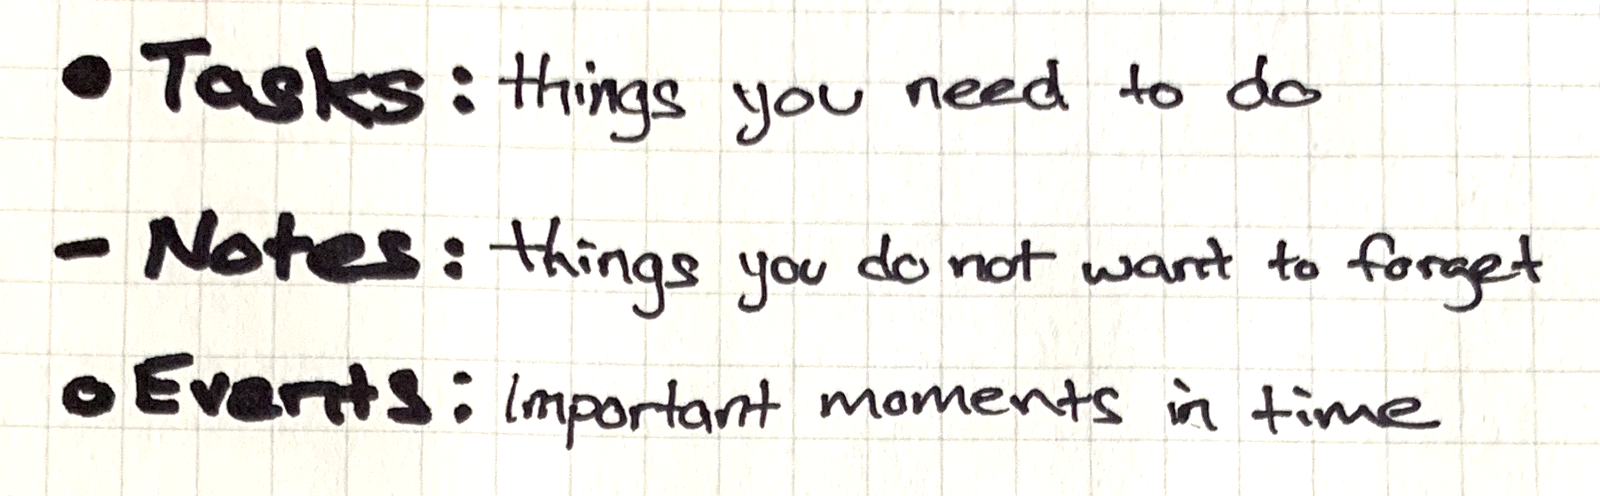 ● Tasks: things you need to do
– Notes: things you do not want to forget
○ Events: important moments in time